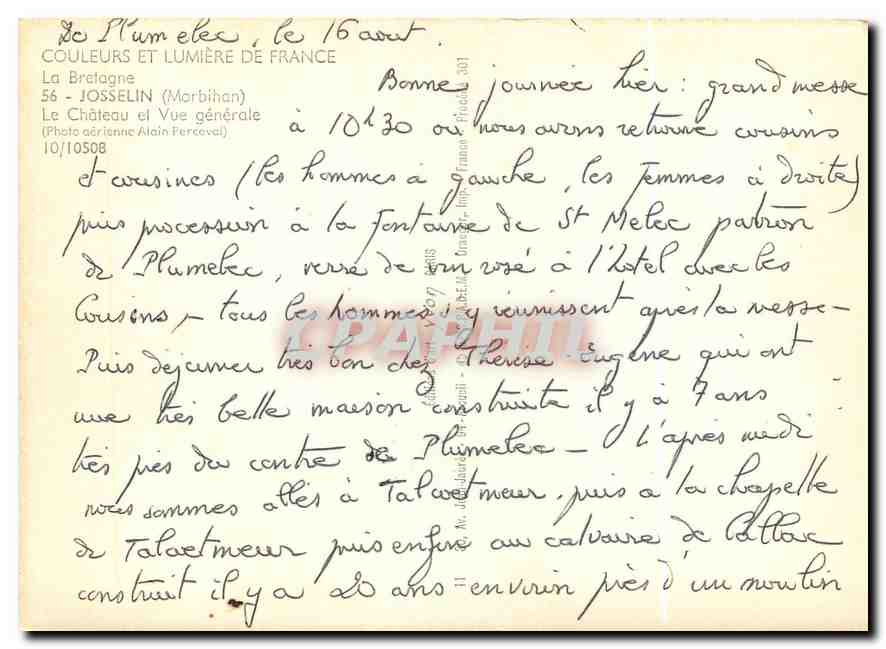 De Plumelec, le 16 aout.
COULEURS ET LUMIÈRE DE FRANCE
La Bretagne
56 - JOSSELIN (Morbihan)
Le Château et Vue générale
(Photo aérienne Alain Perceval)
10/10508
Bonne journée hier : grand messe
à 10h30 où nous avons retrouvé cousins
et cousines (les hommes à gauche, les femmes à droite)
puis procession à la Fontaine de St Melec patron
de Plumelec, verre de vin rosé à l'hotel avec les
Cousins - tous les hommes s'y réunissent après la messe -
Puis déjeuner très bon chez Thérèse Eugène qui ont
une très belle maison construite il y a 7 ans
très près du centre de Plumelec - L'après midi
nous sommes allés à Talvetmeur, puis à la chapelle
de Talvetmeur puis enfin au calvaire de Callac
construit il y a 20 ans environ près d'un moulin
CPAPHIL
Éditions d'art YVON
11, Av. Jean-Jaurès, 94-Arcueil
Imp. France
301